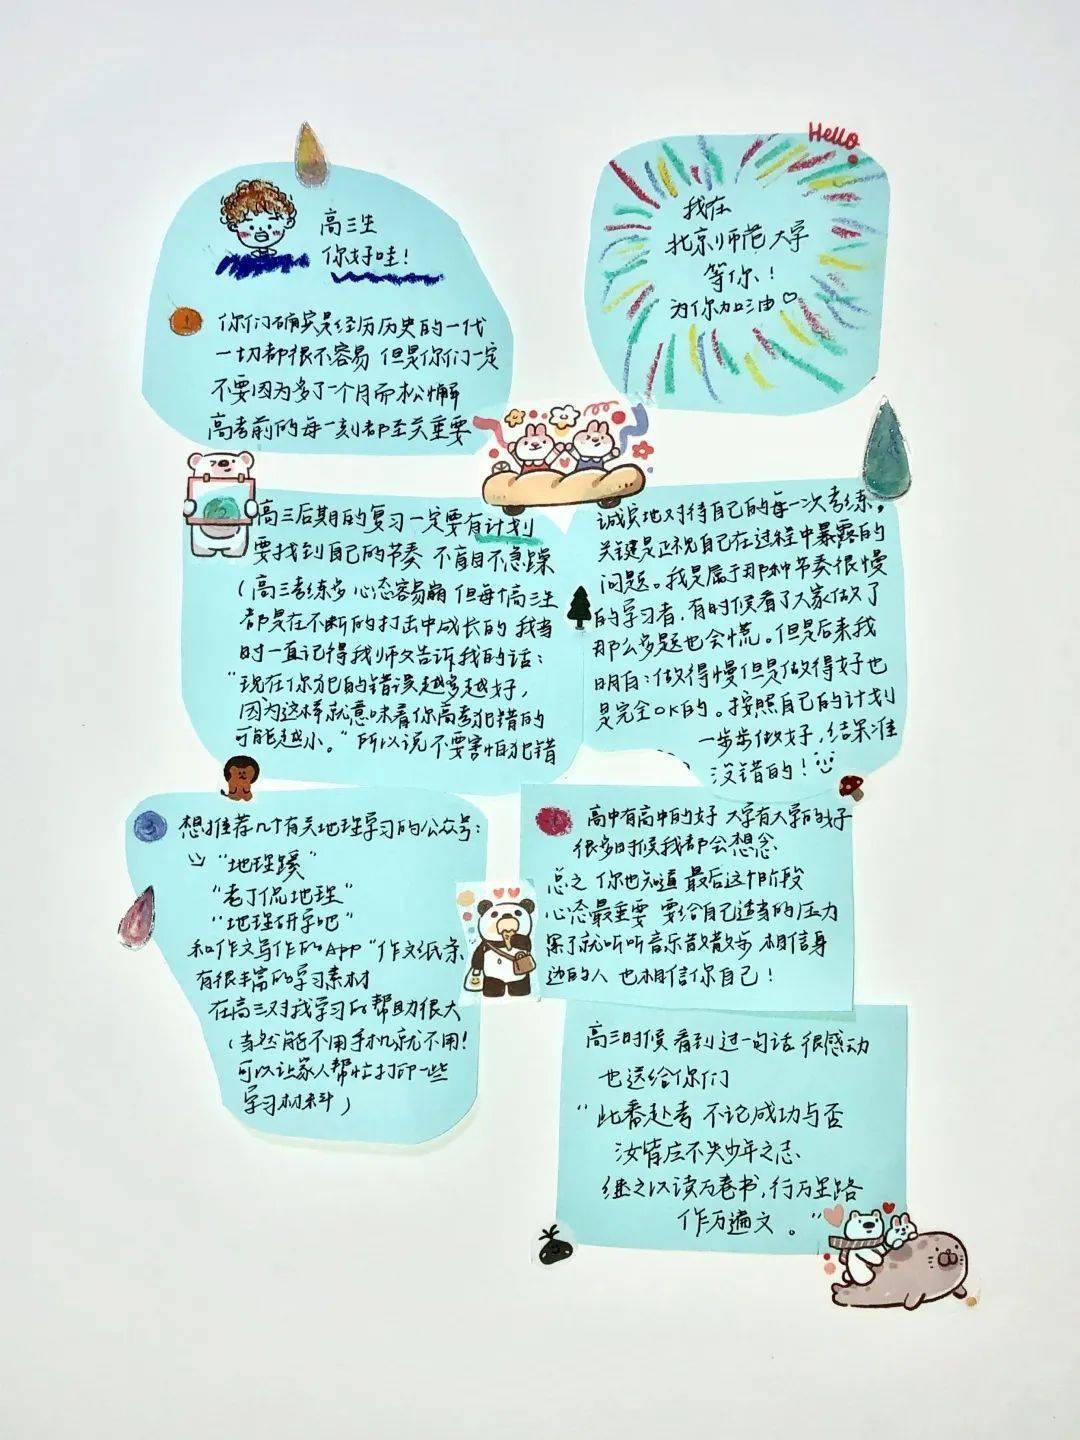 高三生
你好哇!
你们确实是经历历史的一代
一切都很不容易 但是你们一定
不要因为多了一个月而松懈
高考前的每一刻都至关重要
Hello
我在
北京师范大学
等你!
为你加油♡
高三后期的复习一定要有计划
要找到自己的节奏 不盲目不急躁
(高三考练多 心态容易崩 但每个高三生
都是在不断的打击中成长的 我当
时一直记得我师父告诉我的话:
“现在你犯的错误越多越好,
因为这样就意味着你高考犯错的
可能越小。”所以说不要害怕犯错
诚实地对待自己的每一次考练。
关键是正视自己在过程中暴露的
问题。我是属于那种节奏很慢
的学习者,有时候看了大家做了
那么多题也会慌。但是后来我
明白:做得慢但是做得好也
是完全OK的。按照自己的计划
一步步做好,结果准
没错的!
想推荐几个有关地理学习的公众号:
“地理蹊”
“老丁侃地理”
“地理研学吧”
和作文写作的App“作文纸条
有很丰富的学习素材
在高三对我学习的帮助很大
(当然能不用手机就不用!
可以让家人帮忙打印一些
学习材料)
高中有高中的好 大学有大学的好
很多时候我都会想念
总之 你也知道 最后这个阶段
心态最重要 要给自己适当的压力
累了就听听音乐散散步 相信身
边的人 也相信你自己!
高三时候看到过一句话 很感动
也送给你们
“此番赴考 不论成功与否
汝皆应不失少年之志
继之以读万卷书,行万里路
作万遍文。”